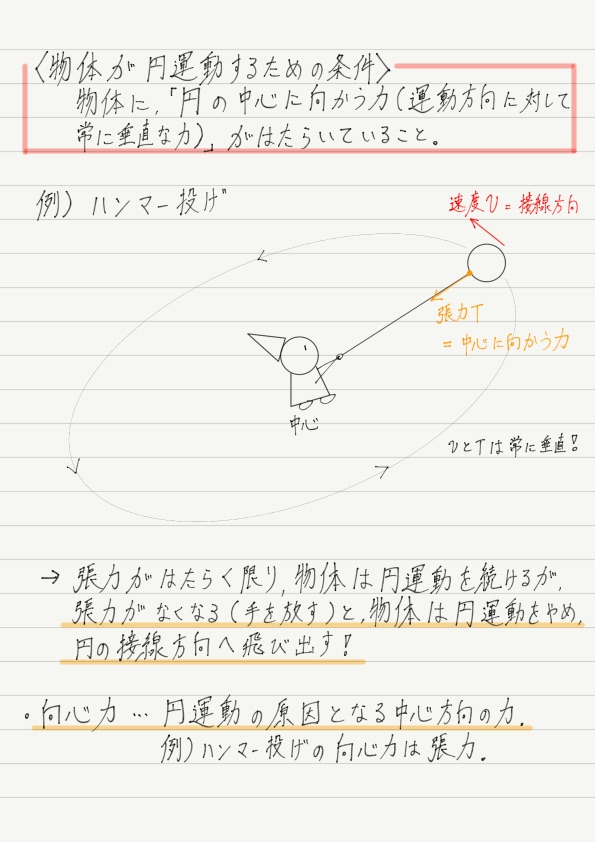 〈物体が円運動するための条件〉
物体に,「円の中心に向かう力(運動方向に対して
常に垂直な力)」がはたらいていること。
例) ハンマー投げ
速度v=接線方向
張力T
=中心に向かう力
中心
vとTは常に垂直!
→ 張力がはたらく限り,物体は円運動を続けるが,
張力がなくなる(手を放す)と,物体は円運動をやめ,
円の接線方向へ飛び出す!
・向心力…円運動の原因となる中心方向の力.
例)ハンマー投げの向心力は張力.